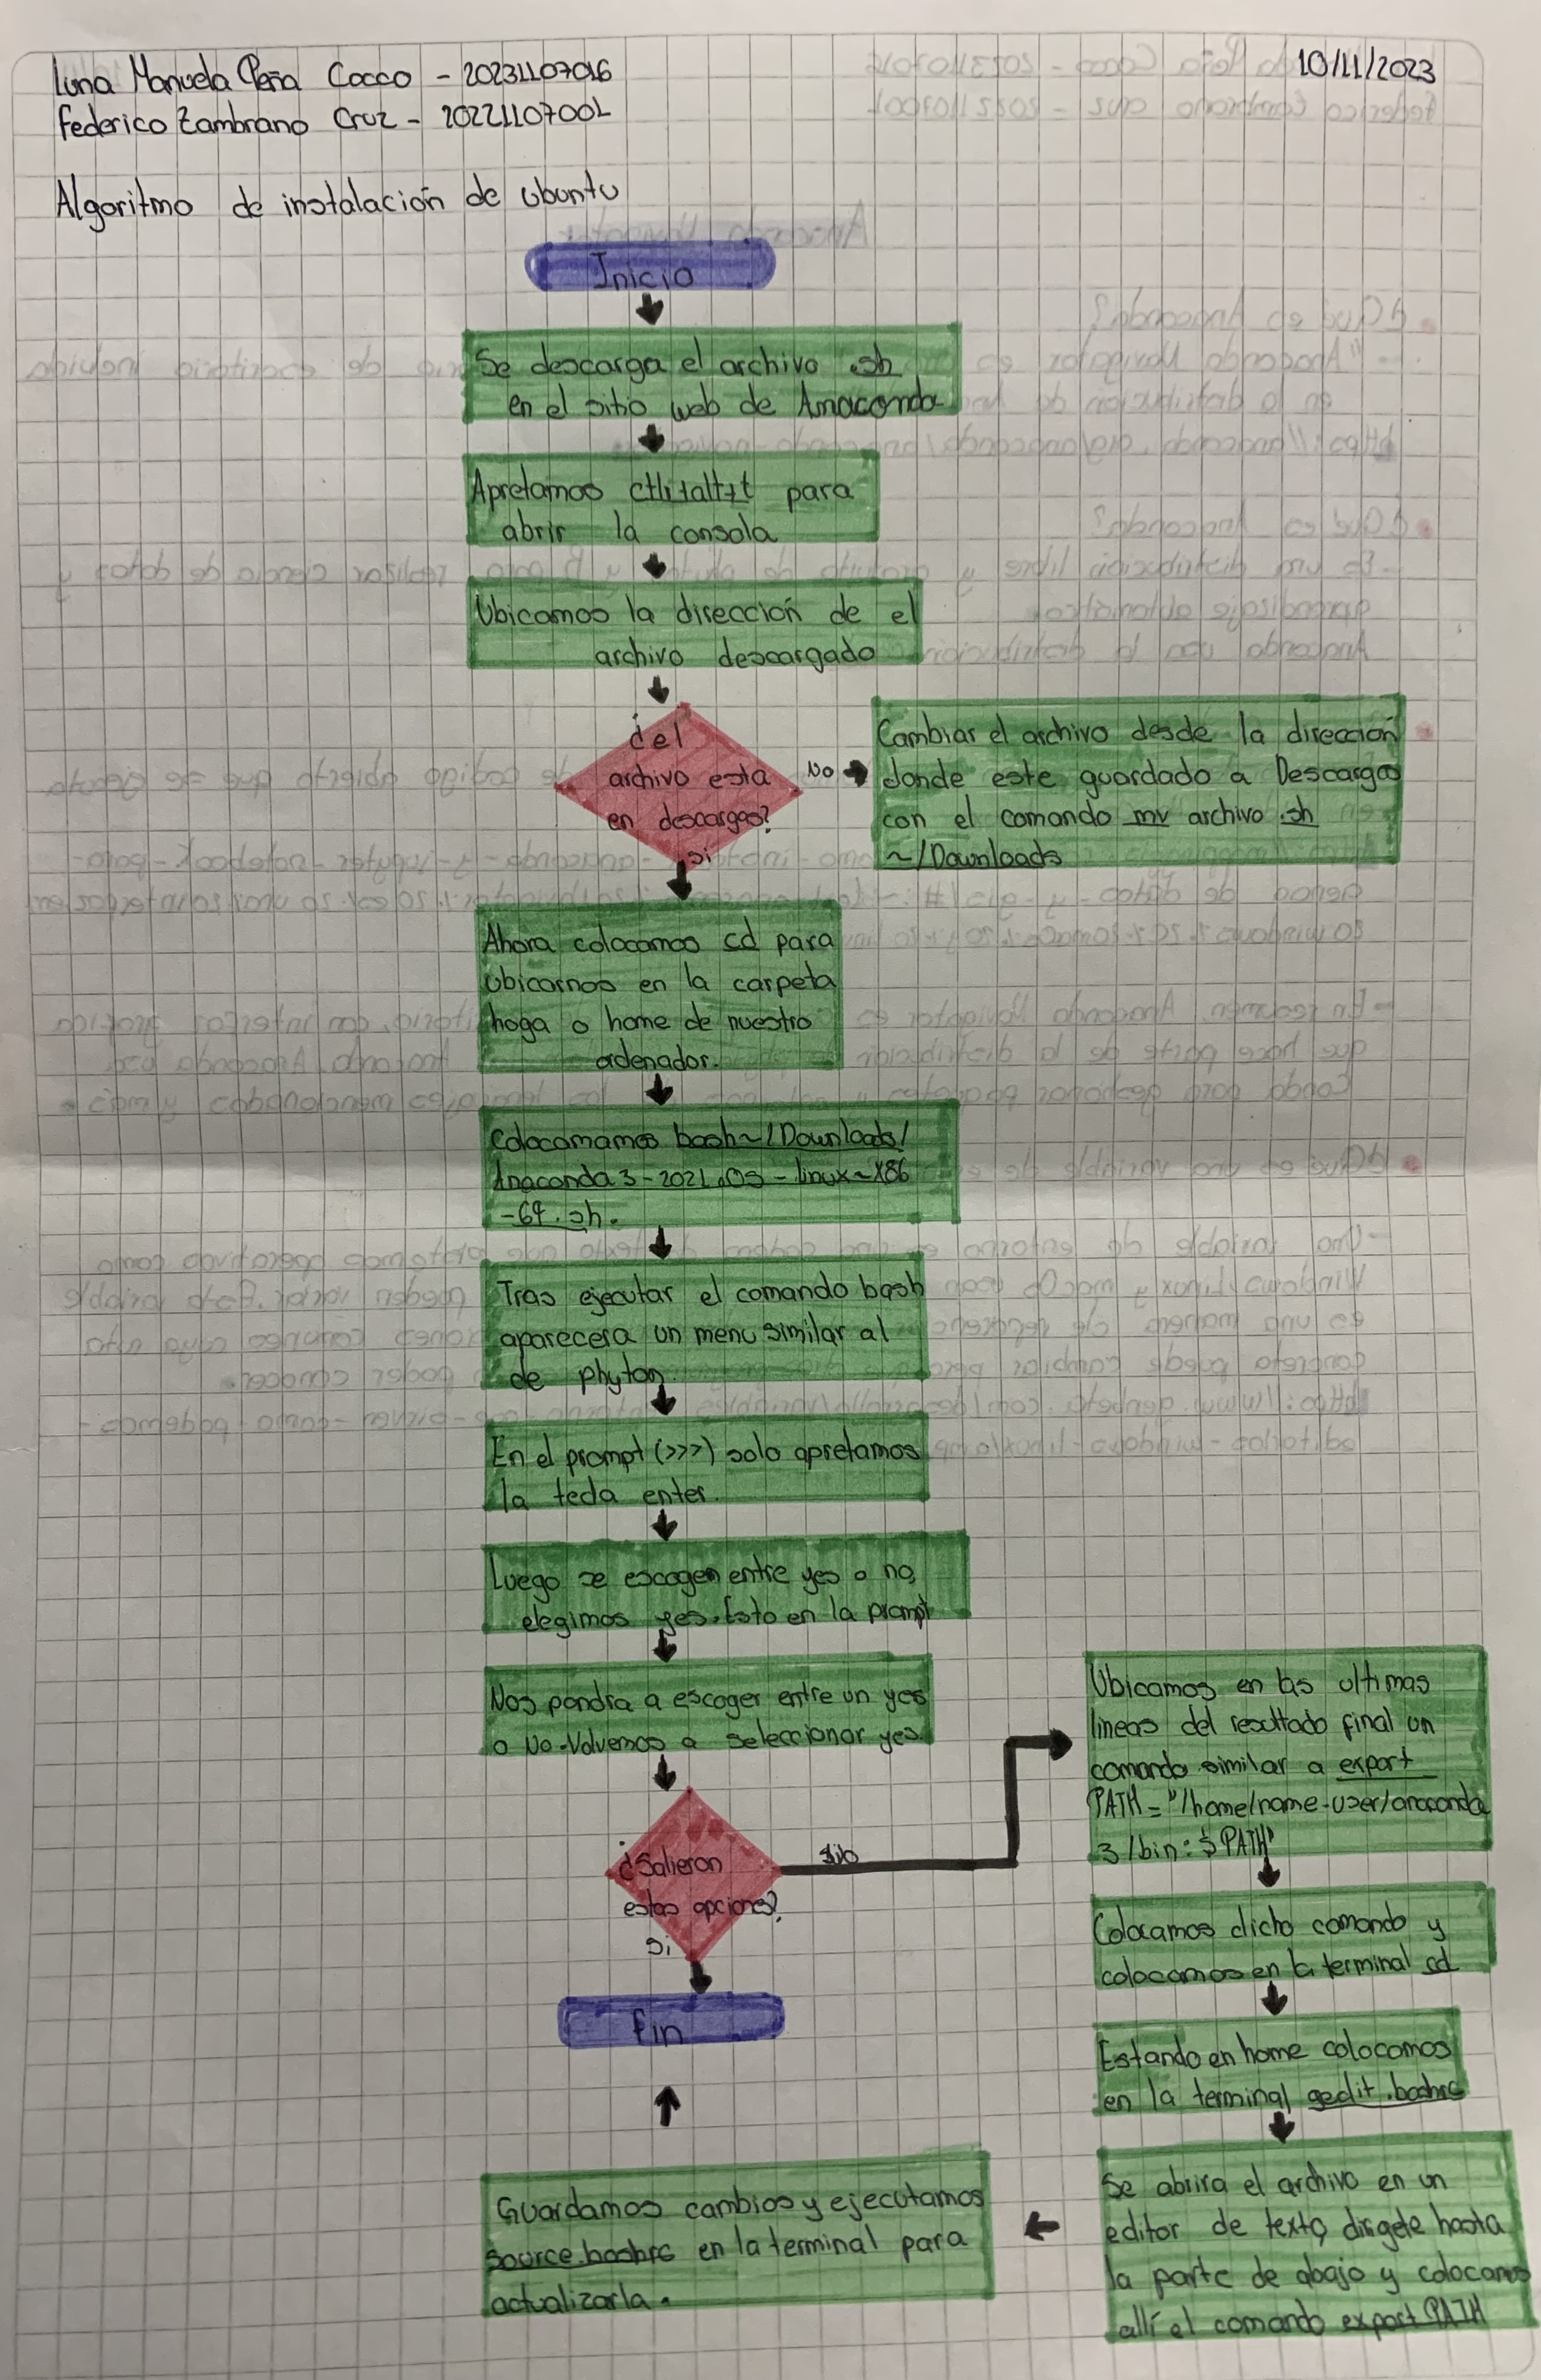 Luna Manuela Peña Cocco - 20231107016
10/11/2023
Federico Zambrano Cruz - 20221107001
Algoritmo de instalación de Ubuntu
Inicio
Se descarga el archivo .sh
en el sitio web de Anaconda
Apretamos ctrl+alt+t para
abrir la consola
Ubicamos la dirección de el
archivo descargado
¿el
archivo esta
en descargas?
No
Cambiar el archivo desde la dirección
donde este guardado a Descargas
con el comando mv archivo .sh
~/Downloads
si
Ahora colocamos cd para
ubicarnos en la carpeta
hoga o home de nuestro
ordenador.
Colocamamos bash~/Downloads/
Anaconda3-2021.05-linux-x86
-64.sh.
Tras ejecutar el comando bash
aparecera un menu similar al
de phyton.
En el prompt (>>>) solo apretamos
la tecla enter.
Luego se escogen entre yes o no,
elegimos yes. Esto en la prompt
Nos pondra a escoger entre un yes
o No. Volvemos a seleccionar yes.
¿Salieron
estas opciones?
No
si
Fin
Ubicamos en las ultimas
lineas del resultado final un
comando similar a export
PATH="/home/name-user/anaconda
3/bin:$PATH"
Colocamos dicho comando y
colocamos en la terminal cd
Estando en home colocamos
en la terminal gedit .bashrc
Se abrira el archivo en un
editor de texto, dirigete hasta
la parte de abajo y colocamos
allí el comando export PATH
Guardamos cambios y ejecutamos
source.bashrc en la terminal para
actualizarla.